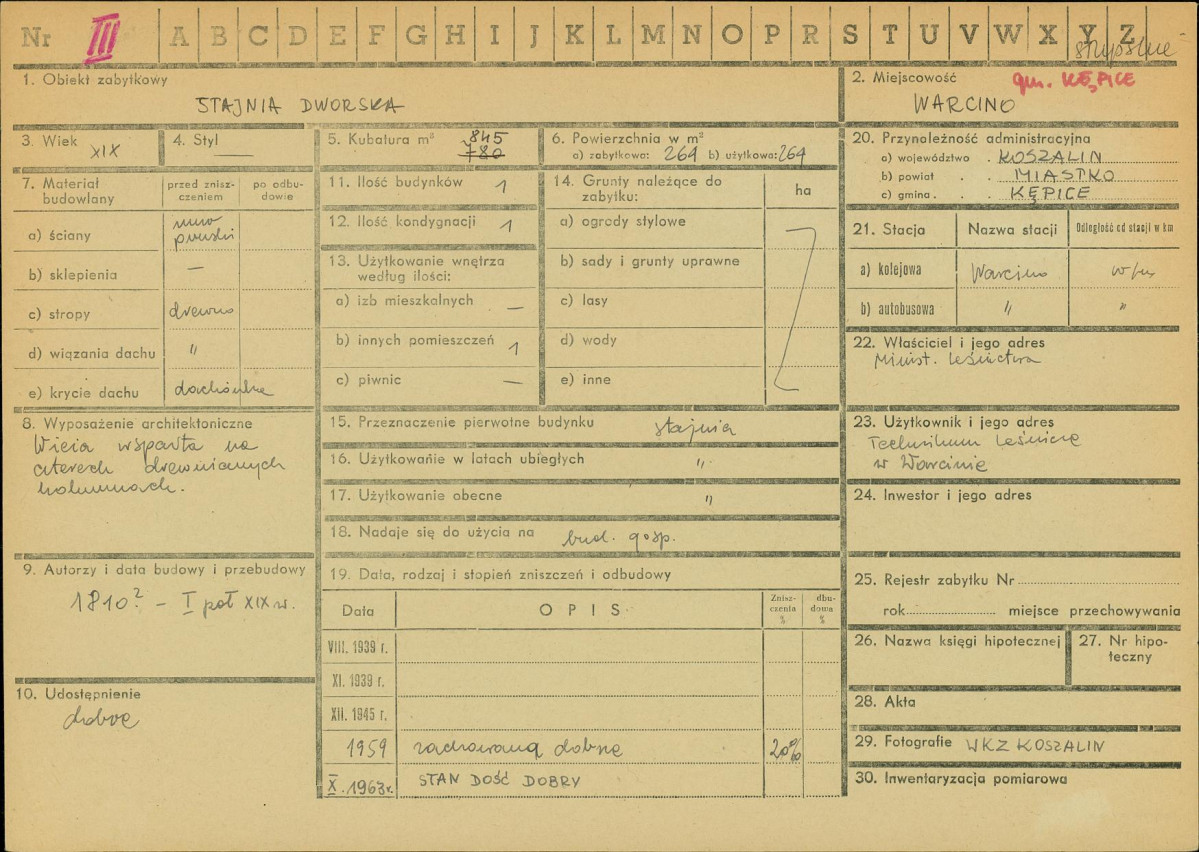 Nr III A B C D E F G H I J K L M N O P R S T U V W X Y Z
słupskie
1. Obiekt zabytkowy
STAJNIA DWORSKA
2. Miejscowość
gm. KĘPICE
WARCINO
3. Wiek XIX
4. Styl —
5. Kubatura m³ 845
780
6. Powierzchnia w m²
a) zabytkowa: 264 b) użytkowa: 264
20. Przynależność administracyjna
a) województwo . KOSZALIN
b) powiat . . MIASTKO
c) gmina . . . KĘPICE
7. Materiał budowlany
przed znisz-
czeniem
po odbu-
dowie
a) ściany
mur
pruski
b) sklepienia —
c) stropy drewno
d) wiązania dachu "
e) krycie dachu dachówka
11. Ilość budynków 1
12. Ilość kondygnacji 1
13. Użytkowanie wnętrza
według ilości:
a) izb mieszkalnych —
b) innych pomieszczeń 1
c) piwnic —
14. Grunty należące do
zabytku:
ha
a) ogrody stylowe
b) sady i grunty uprawne
c) lasy
d) wody
e) inne
21. Stacja Nazwa stacji Odległość od stacji w km
a) kolejowa Warcino
b) autobusowa " "
22. Właściciel i jego adres
Minist. Leśnictwa
8. Wyposażenie architektoniczne
Wieża wsparta na
czterech drewnianych
kolumnach.
15. Przeznaczenie pierwotne budynku stajnia
16. Użytkowanie w latach ubiegłych "
17. Użytkowanie obecne "
18. Nadaje się do użycia na bud. gosp.
23. Użytkownik i jego adres
Technikum Leśnicze
w Warcinie
24. Inwestor i jego adres
9. Autorzy i data budowy i przebudowy
1810? - I poł XIX w.
19. Data, rodzaj i stopień zniszczeń i odbudowy
Data OPIS
Znisz-
czenia
%
dbu-
dowa
%
VIII. 1939 r.
XI. 1939 r.
XII. 1945 r.
1959 zachowaną dobrze 20%
X. 1963 r. STAN DOŚĆ DOBRY
10. Udostępnienie
dobre
25. Rejestr zabytku Nr
rok miejsce przechowywania
26. Nazwa księgi hipotecznej
27. Nr hipo-
teczny
28. Akta
29. Fotografie WKZ KOSZALIN
30. Inwentaryzacja pomiarowa